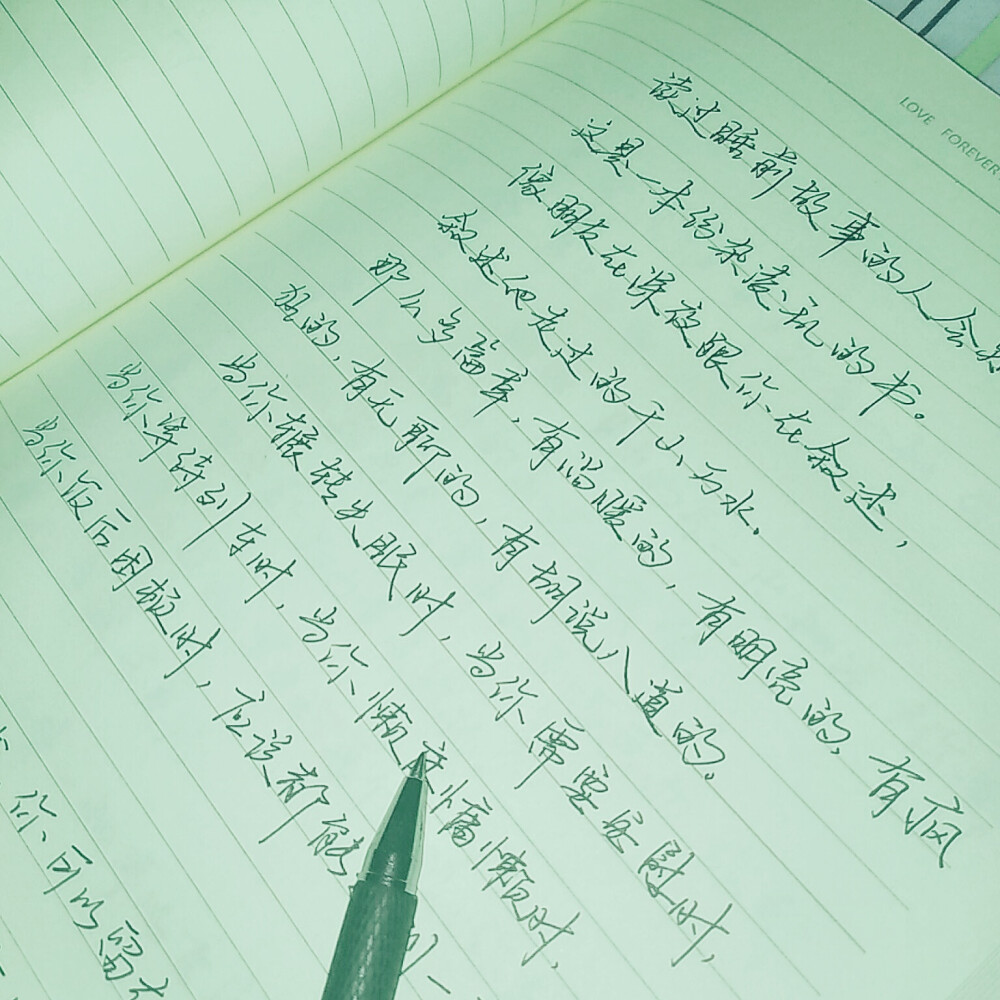 LOVE FOREVER
读过睡前故事的人会
这是一本纷杂凌乱的书。
像朋友在深夜跟你在叙述,
叙述他走过的千山万水.
那么多篇章,有温暖的,有明亮的,有疯
狂的,有无聊的,有胡说八道的.
当你辗转失眠时,当你需要安慰时,
当你等待列车时,当你懒 慵懒时,
当你饭后困顿时,应该都能
你可以留